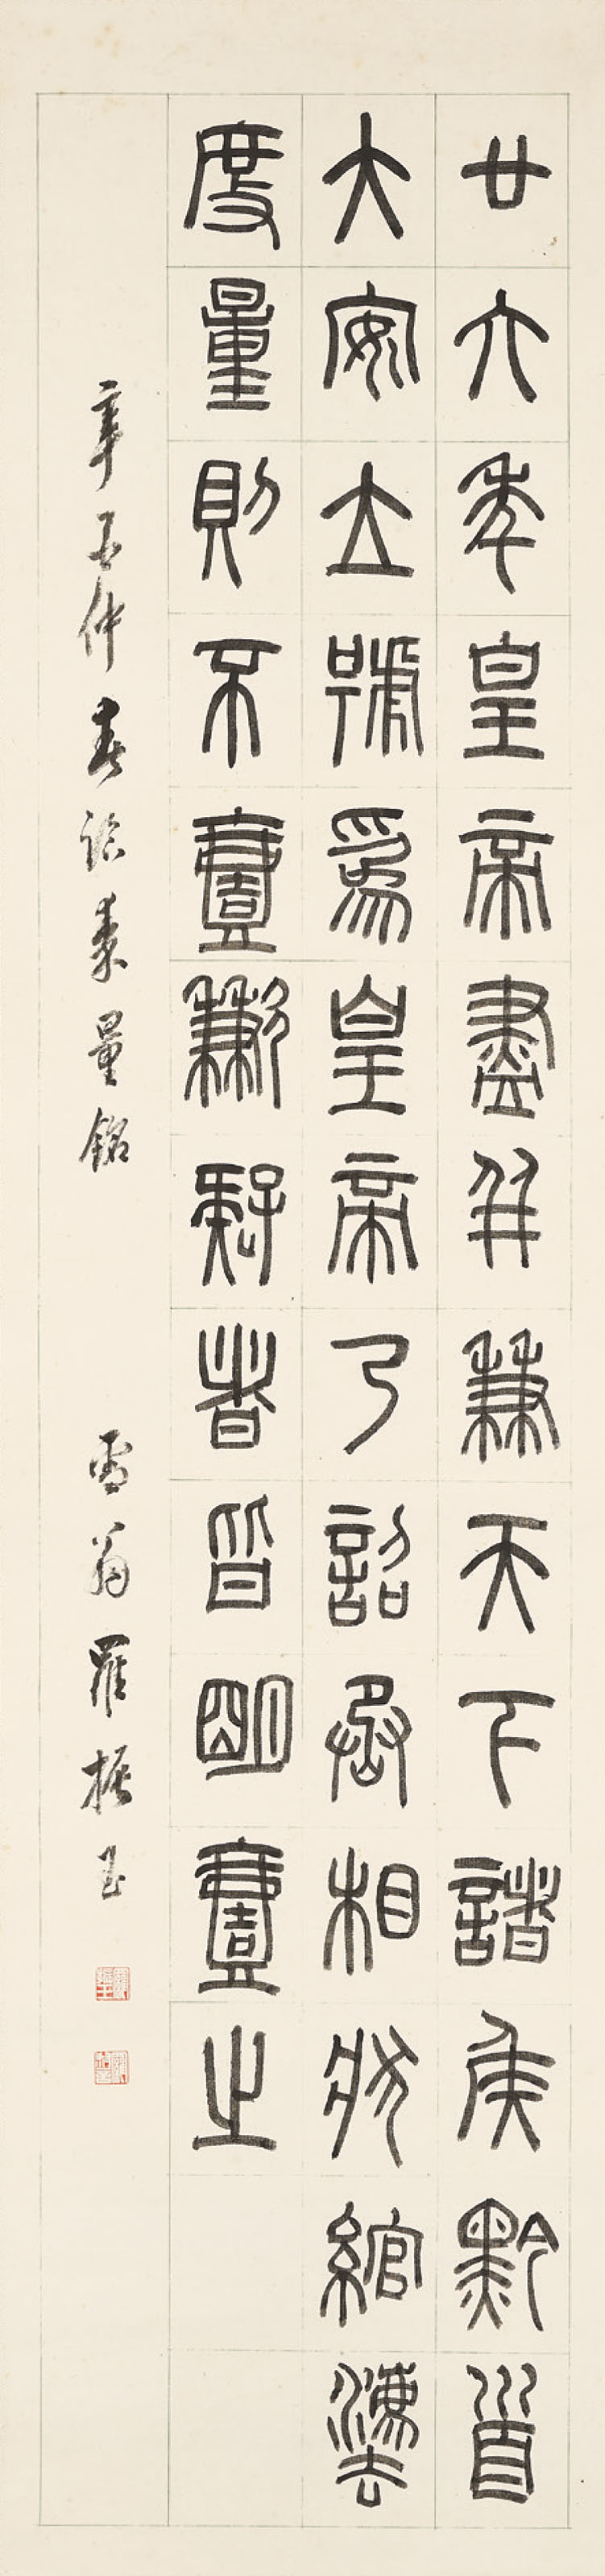 廿六年皇帝盡并兼天下諸侯黔首
大安立號爲皇帝乃詔丞相狀綰灋
度量則不壹歉疑者皆明壹之
辛酉仲春臨秦量銘 雪翁羅振玉